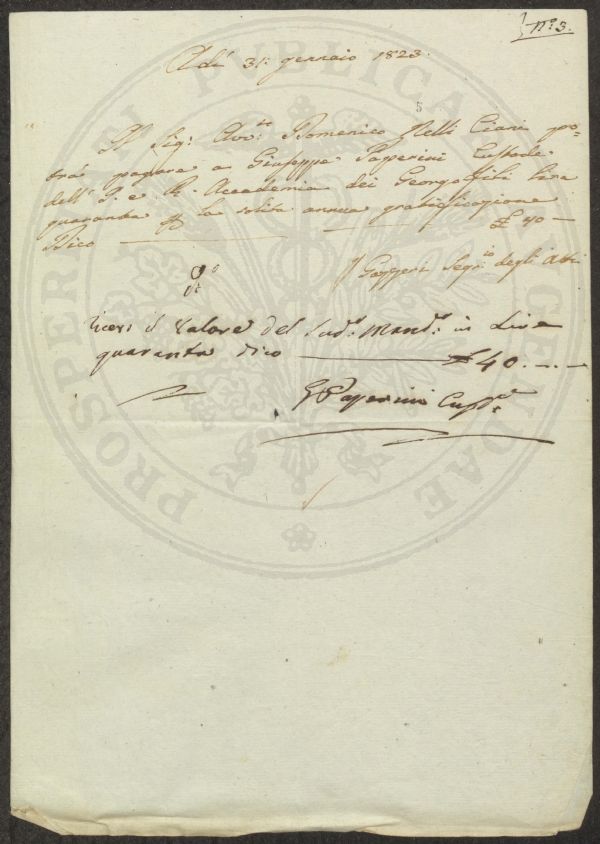 N° 3.
Adì 31. gennaio 1823.
5
Il Sig: Avv:to Domenico Nelli Ciani po-
trà pagare a Giuseppe Paperini Custode
dell' I. e R. Accademia dei Georgofili Lire
quaranta p la solita annua gratificazione
Dico £ 40 —
Gazzeri Segr:io degli Atti
Ricevi il Valore del Sud:o Mand:o in Lire
quaranta dico £ 40 . —
G Paperini Cust:e
PROSPERITATI PUBLICAE AUGENDAE